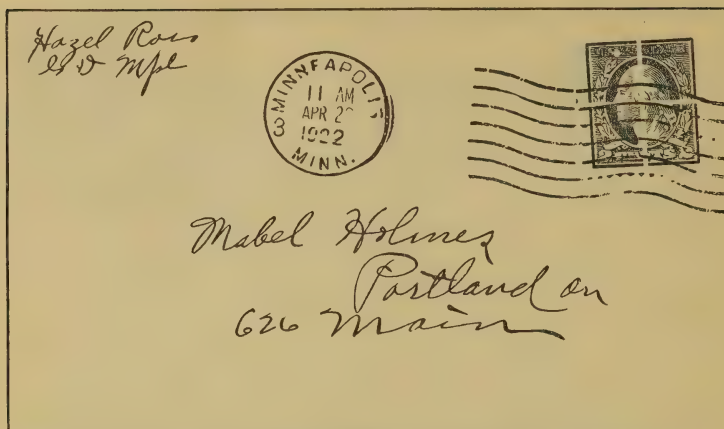 Hazel Ross
G D Mpl
3 MINNEAPOLIS
11 AM
APR 2
1922
MINN.
Mabel Holmes
Portland on
626 Main